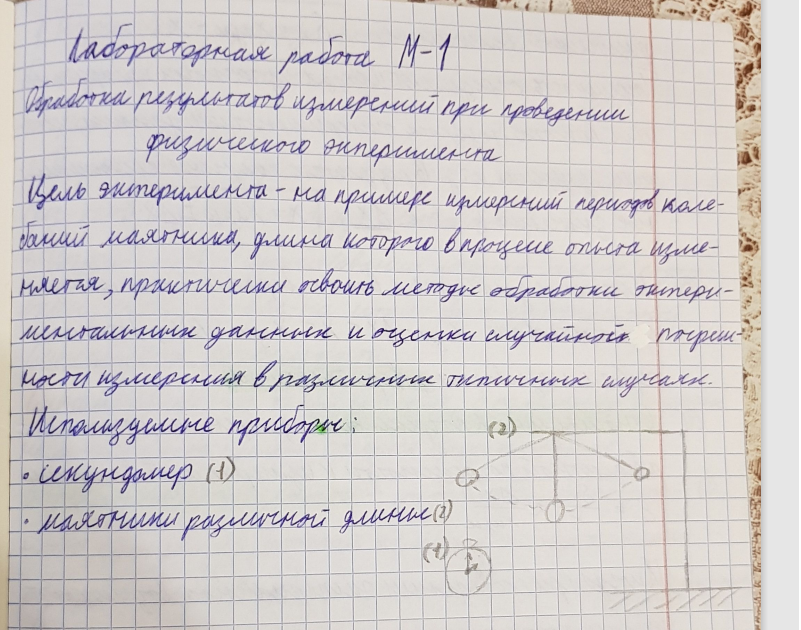 Лабораторная работа М-1
Обработка результатов измерений при проведении
физического эксперимента
Цель эксперимента - на примере измерений периодов коле-
баний маятника, длина которого в процессе опыта изме-
няется, практически освоить методы обработки экспери-
ментальных данных и оценки случайной погреш-
ности измерения в различных типичных случаях.
Используемые приборы:
• секундомер (1)
• маятники различной длины (2)
(2)
(1)